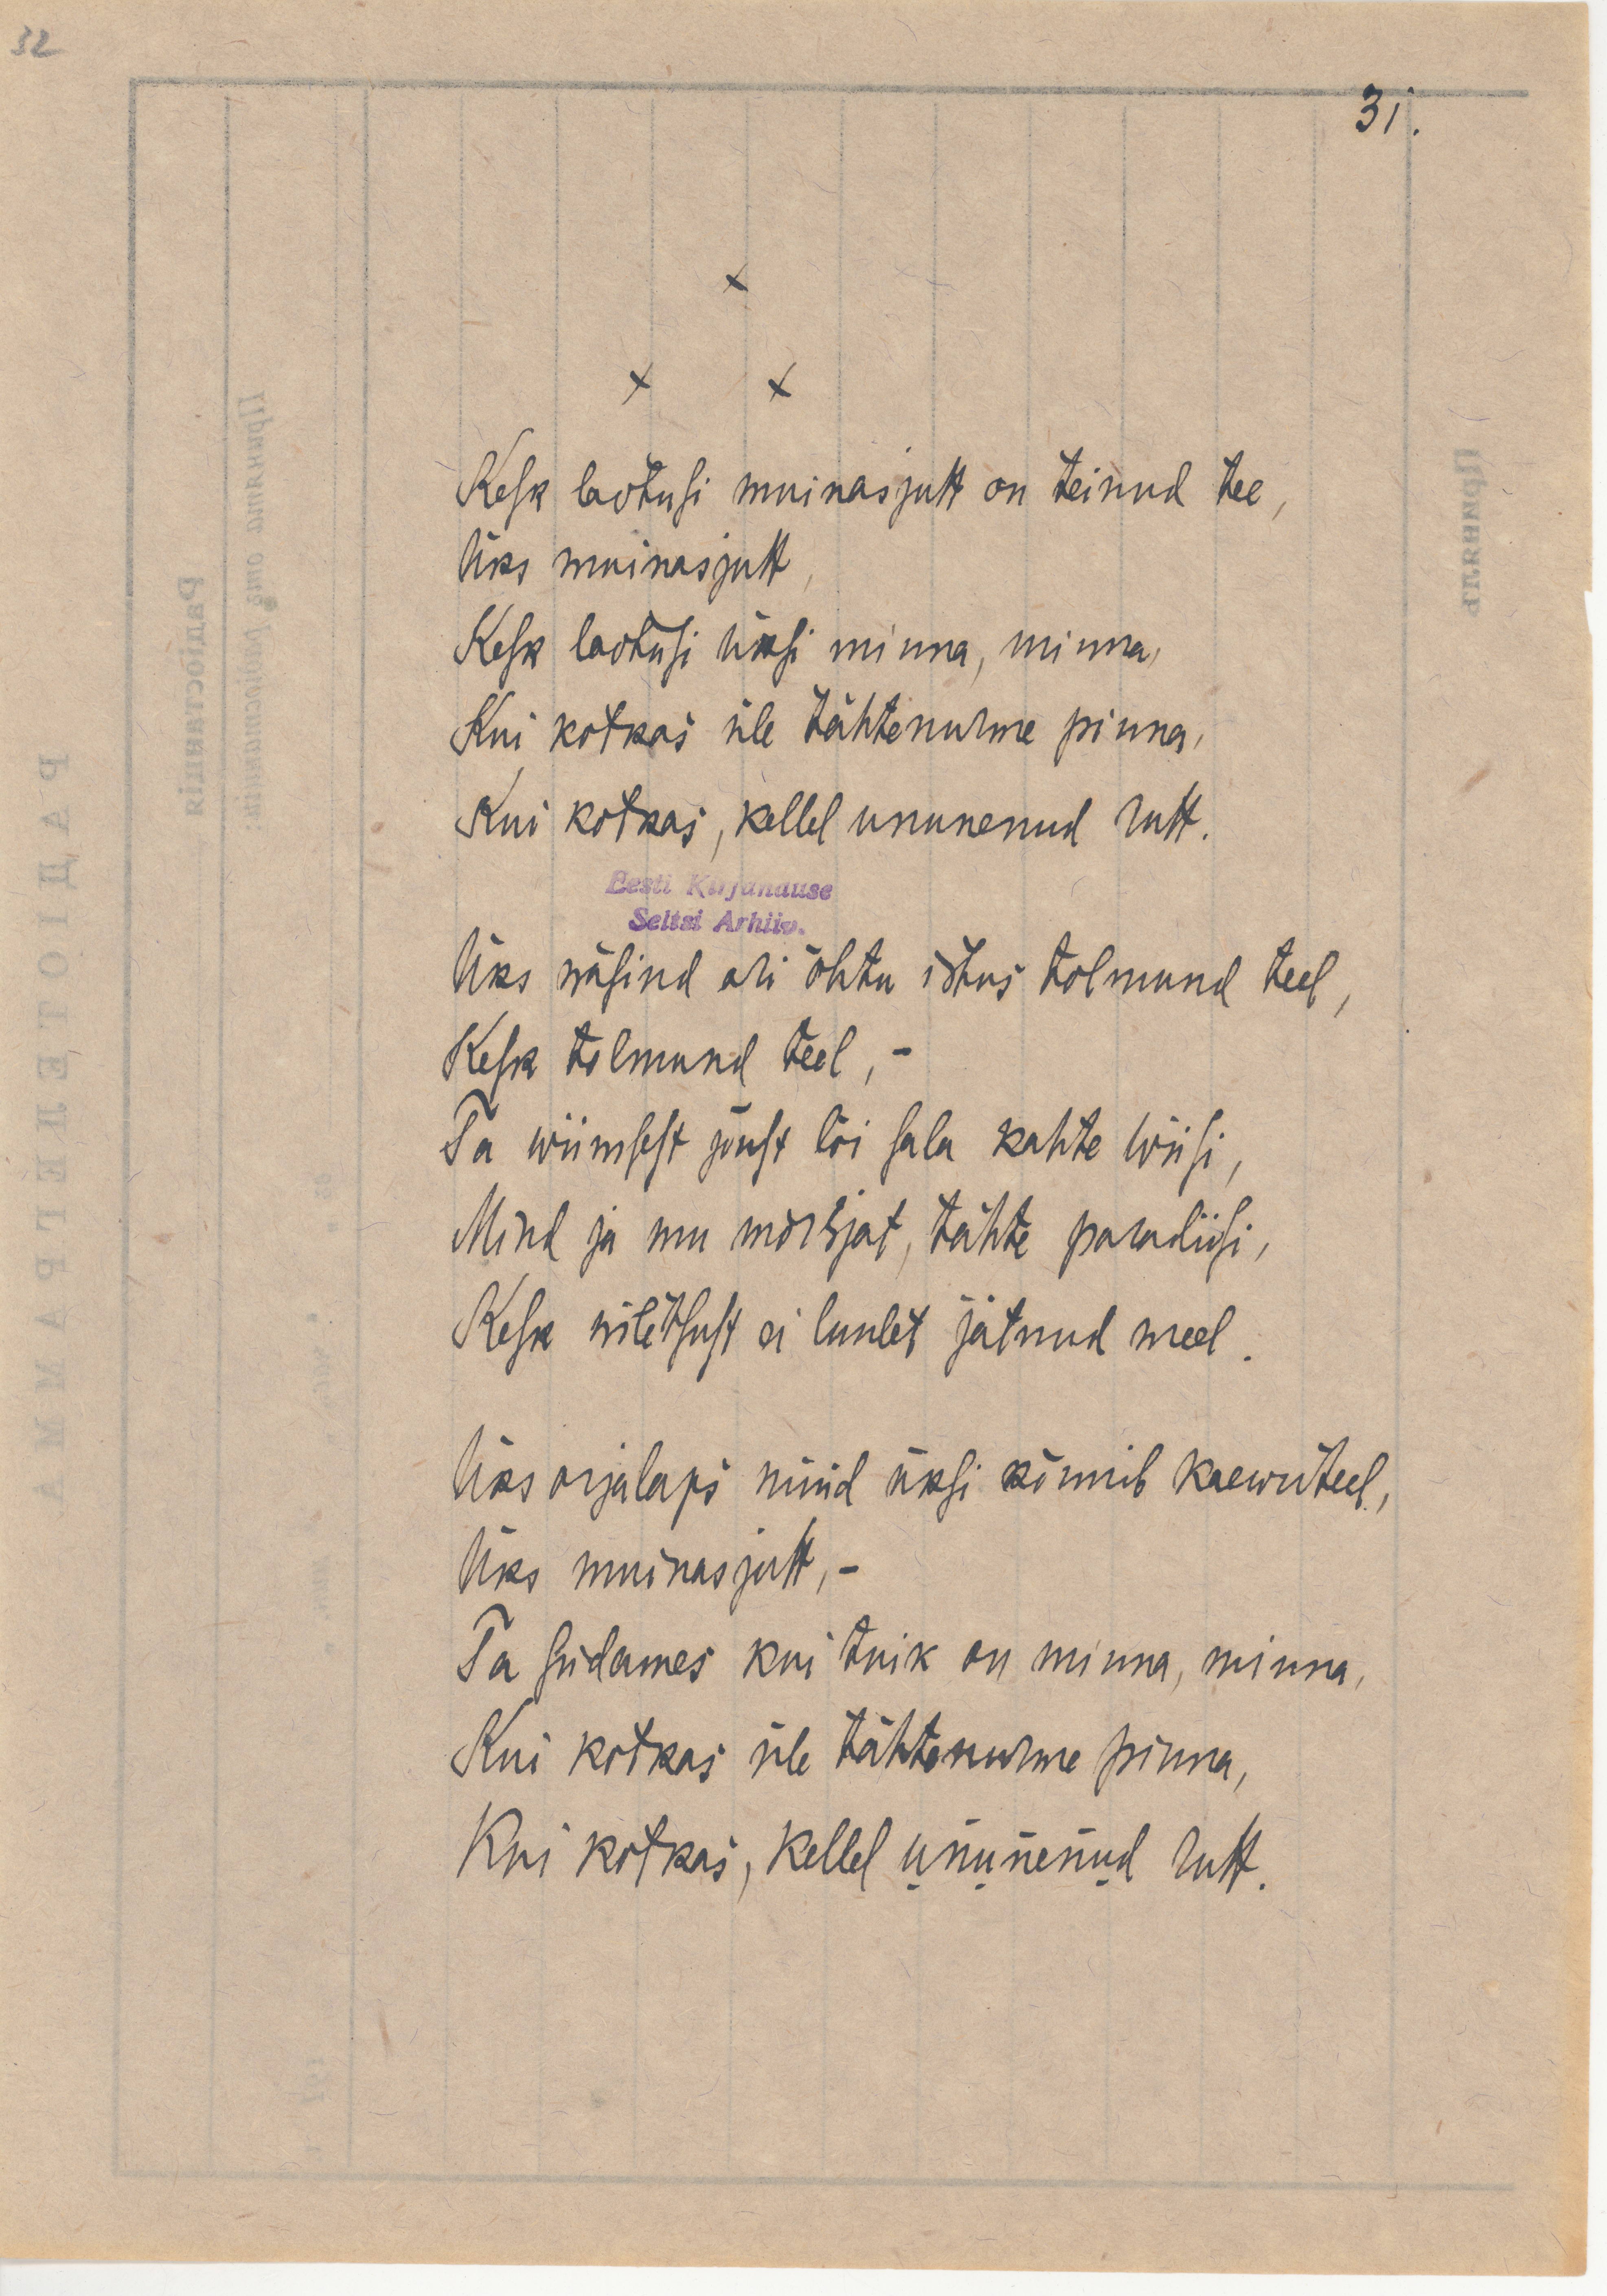 32
31.
x
x x
Kesk laotusi muinasjutt on teinud tee,
Üks muinasjutt,
Kesk laotusi üksi minna, minna,
Kui kotkas üle tähtenurme pinna,
Kui kotkas, kellel ununenud rutt.
Eesti Kirjanduse
Seltsi Arhiiv.
Üks wäsind ori õhtu istus tolmund teel,
Kesk tolmund teel, –
Ta wiimsest jõust lõi sala kahte wiisi,
Mind ja mu mõrsjat, tähte paradiisi,
Kesk wiletsust ei luulet jätnud meel.
Üks orjalaps nüüd üksi kõnnib kaewuteel,
Üks muinasjutt, –
Ta südames kui tuik on minna, minna,
Kui kotkas üle tähtenurme pinna,
Kui kotkas, kellel ununenud rutt.
РАДІОТЕЛЕГРАММА
Радіостанція
Принята отъ радіостанціи:
Принялъ